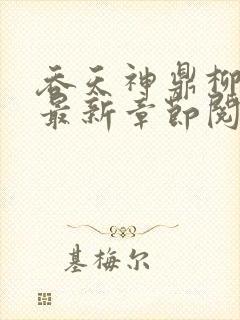 吞天神鼎柳
最新章节阅
基梅尔